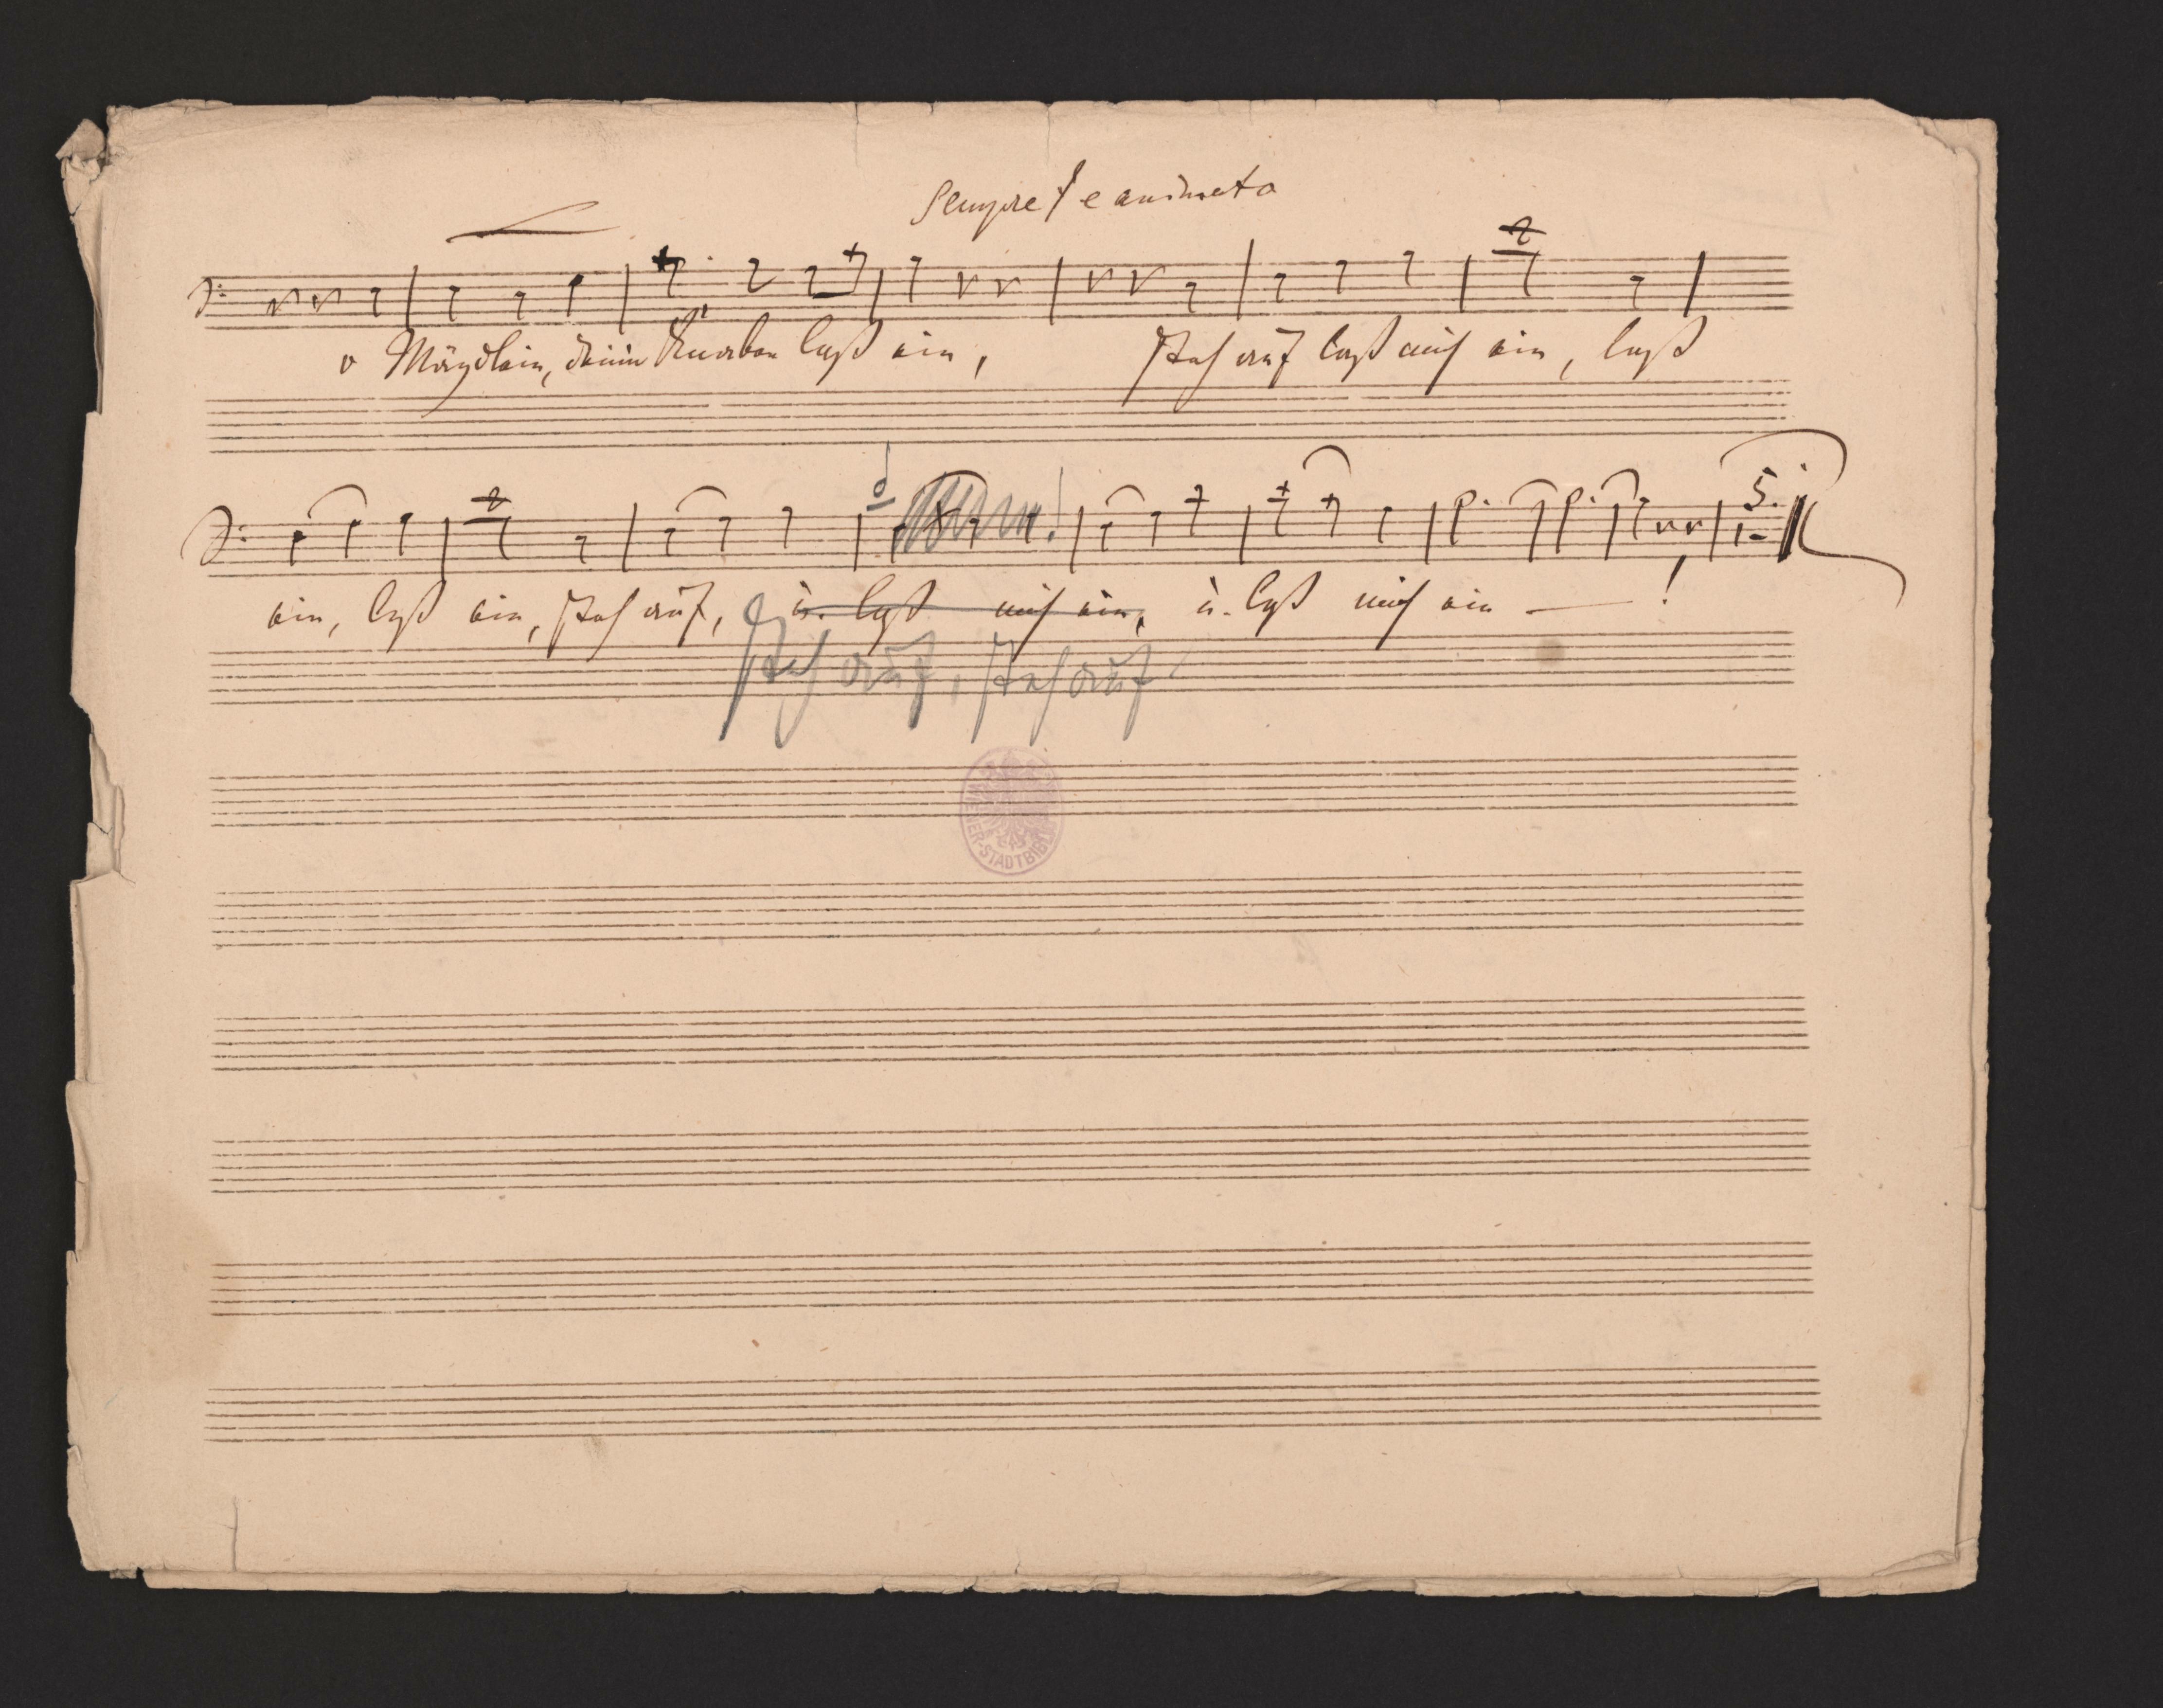 sempre f e animato
o Mägdlein, deinen Knaben laß ein, steh auf laß mich ein, laß
5.
ein, laß ein, steh auf, u. laß mich ein, u. laß mich ein — !
steh auf, steh auf
WIENER-STADTBIBL